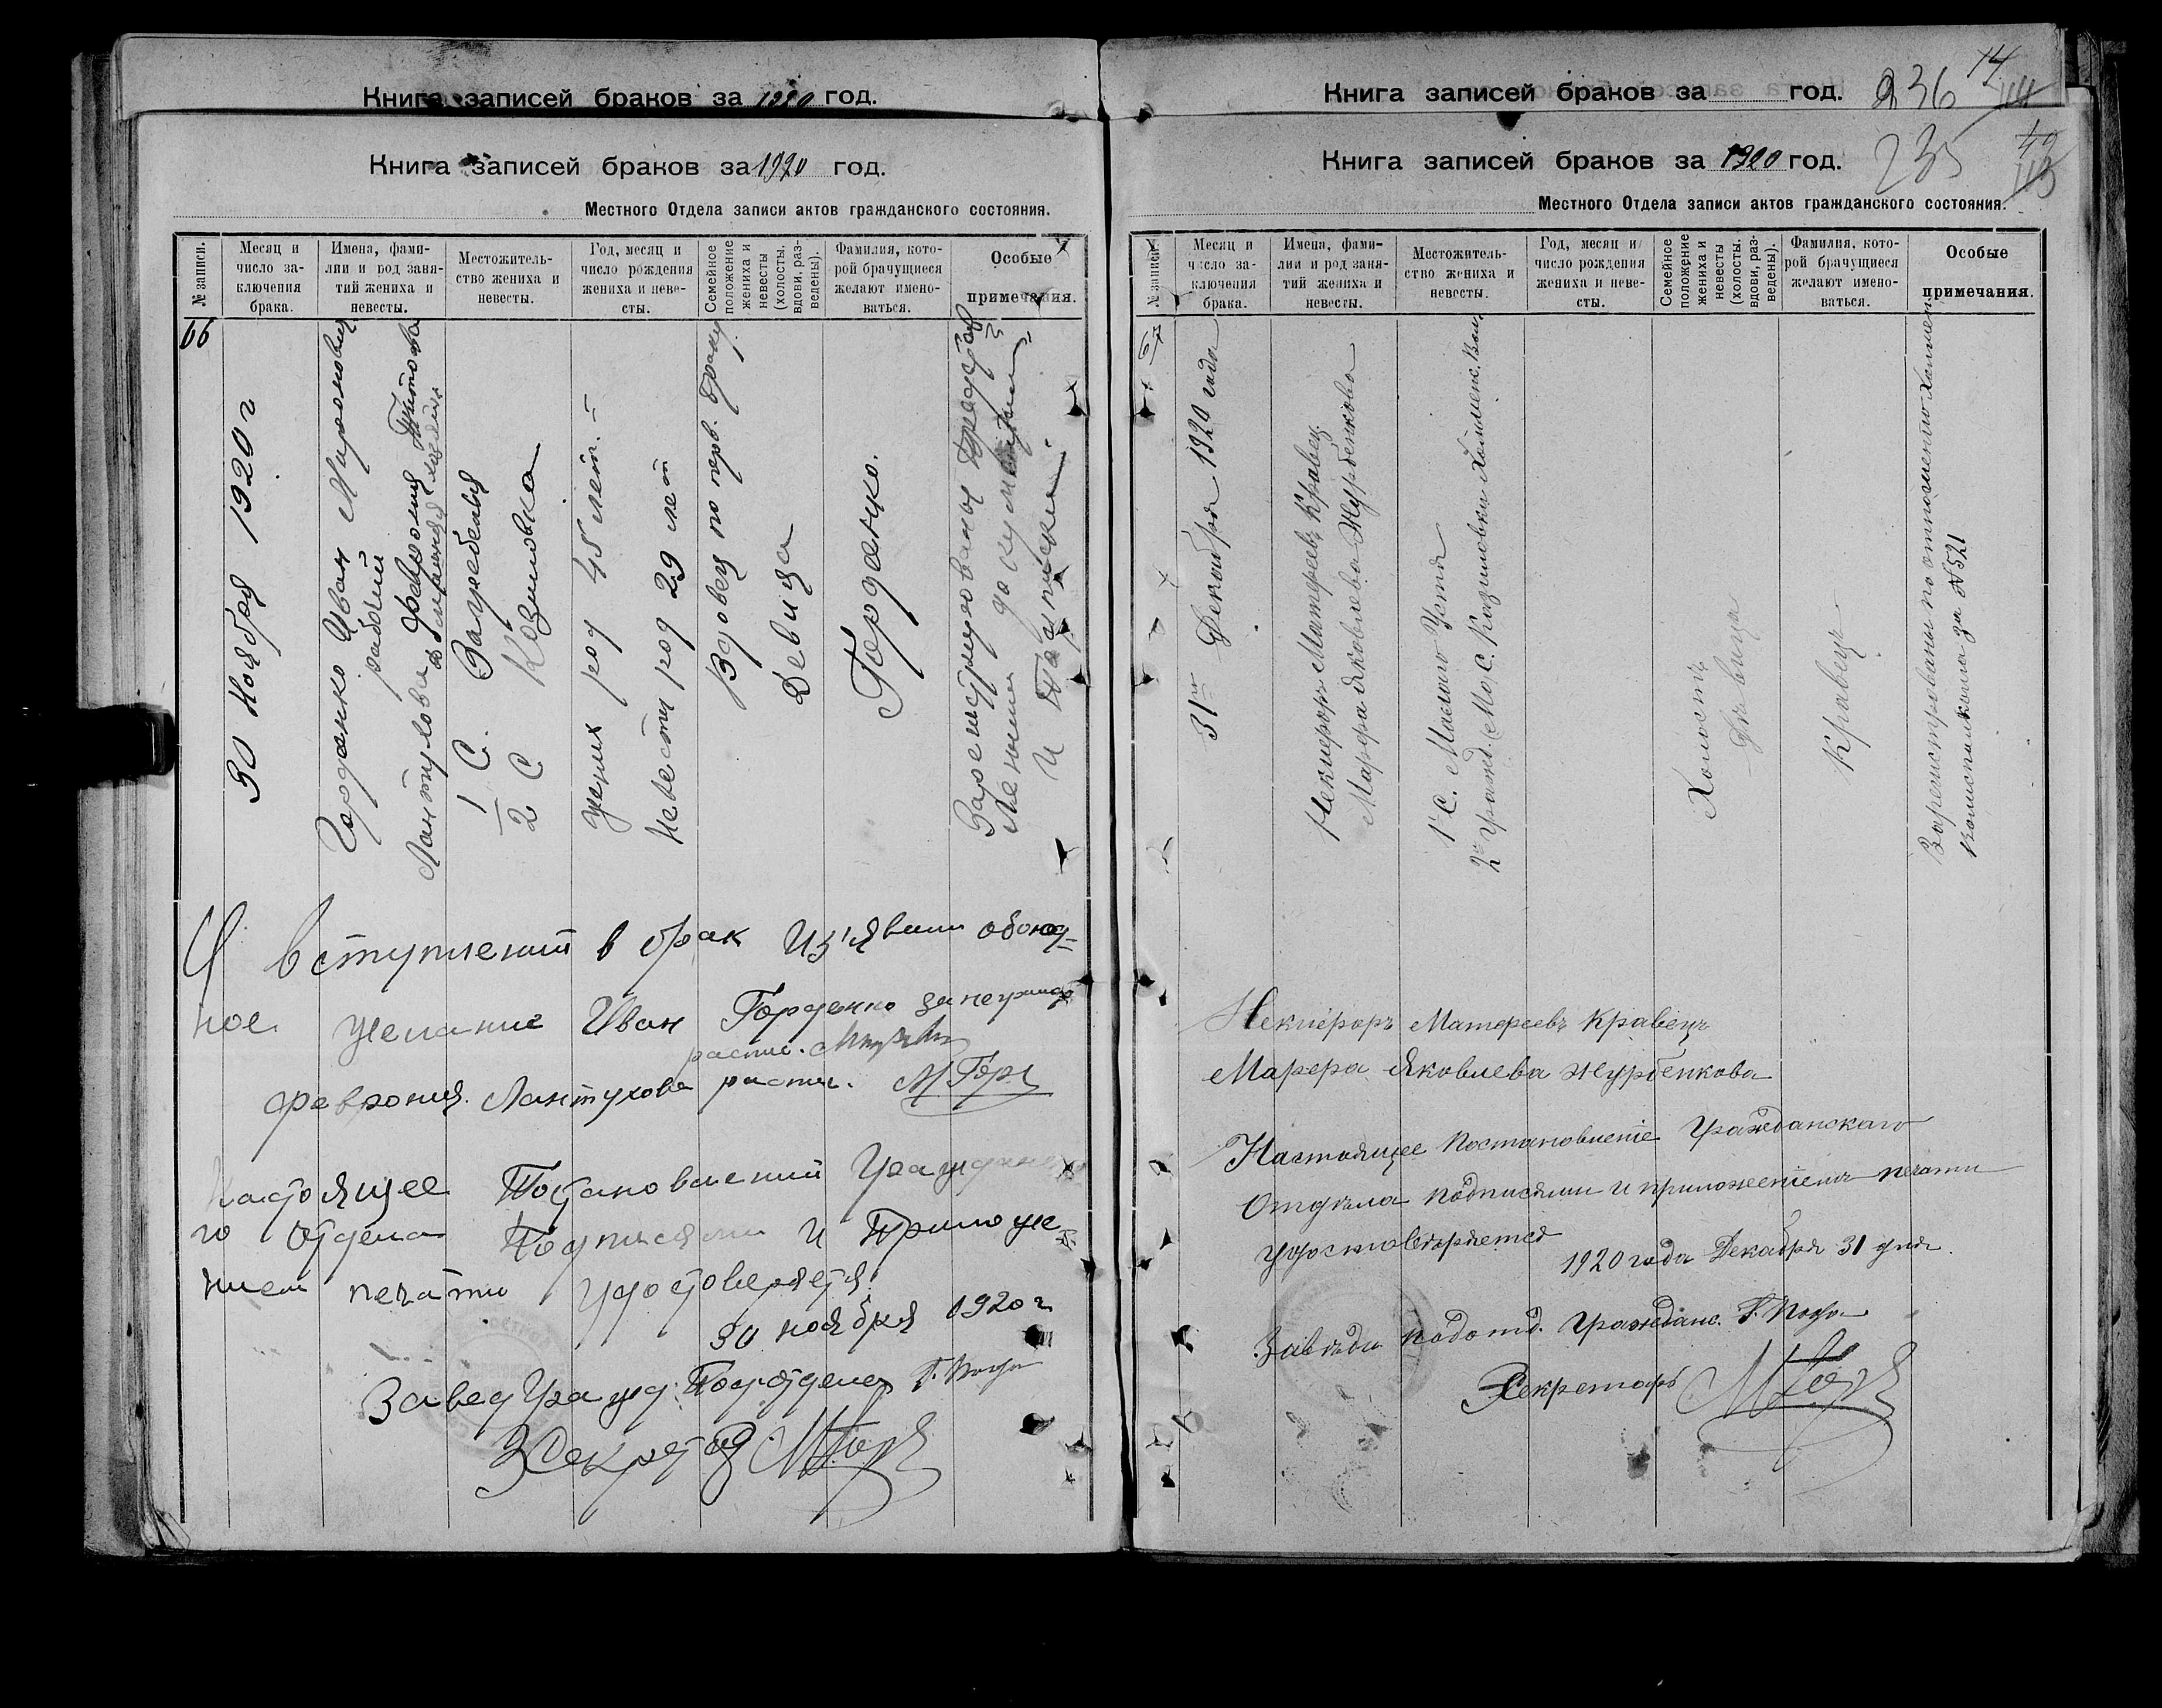 Книга записей браков за 1920 год.
Книга записей браков за 1920 год.
Местного Отдела записи актов гражданского состояния.
№ записи.
Месяц и число заключения брака.
Имена, фамилии и род занятий жениха и невесты.
Местожительство жениха и невесты.
Год, месяц и число рождения жениха и невесты.
Семейное положение жениха и невесты (холосты, вдовы, разведены).
Фамилия, которой брачущиеся желают именоваться.
Особые примечания.
66
30 Ноября 1920 г
Горденко Иван Миронович
рабочий
Лантухова Феврония Титова
домашняя хозяйка
1 С. Загребелья
2 С Козиловка
Жених род 45 лет.
Невеста род 29 лет
Вдовец по перв. браку
Девица
Горденко.
Зарегистрированы
документы
и
О вступлении в брак Из'явили обоюд-
ное желание Иван Горденко за неграмот
распис.
Феврония Лантухова распис. М Гор
Настоящее Постановлений Гражданс
го отдела Подписями и Приложе
нием печати удостоверяется
30 ноября 1920 г
Завед Гражд. Подотдела
Секретар
Книга записей браков за год. 236 14
Книга записей браков за 1920 год. 235
Местного Отдела записи актов гражданского состояния.
№ записи.
Месяц и число заключения брака.
Имена, фамилии и род занятий жениха и невесты.
Местожительство жениха и невесты.
Год, месяц и число рождения жениха и невесты.
Семейное положение жениха и невесты (холосты, вдовы, разведены).
Фамилия, которой брачущиеся желают именоваться.
Особые примечания.
67
31го Декабря 1920 года
Никифоръ Матфеевъ Кравецъ
Марфа Яковлева Журбенкова
1й С. Малого Устя
2й Гражд. С. Казиловки Холменс. Вол.
Холостъ
Дѣвица
Кравецъ
Зарегистрованы по отношенію Холменс
волисполкома за №521
Никифоръ Матфеевъ Кравецъ
Марфа Яковлева Журбенкова
Настоящее постановленіе Гражданскаго
Отдѣла подписями и приложеніемъ печати
удостоверяется
1920 года Декабря 31 дня.
Завѣды. подотд. Гражданс.
Секретарь